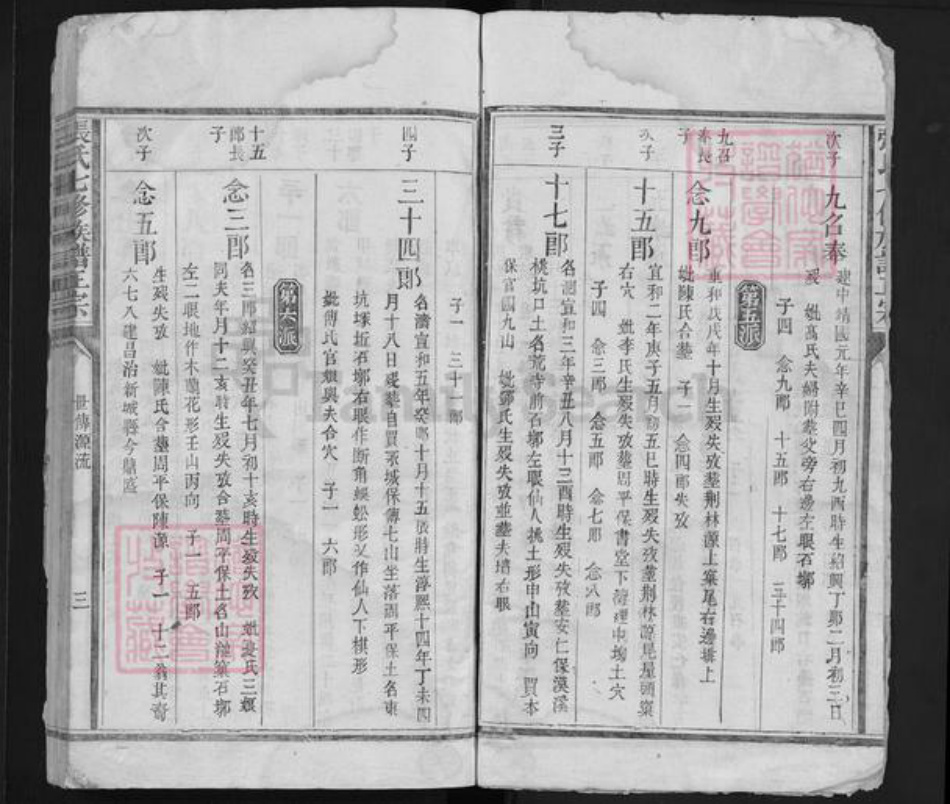 次子
九召奉
建中靖國元年辛巳四月初九酉時生紹興丁卯二月初三日
歿 妣萬氏夫婦附塟父旁右邊左眼石墎
子四 念九郎 十五郎 十七郎 三十四郎
第五派
九召奉長子
念九郎
重和戊戌年十月生歿失攷塟荆林源上窠尾右邊排上
妣陳氏合塟 子一 念四郎失攷
次子
十五郎
宣和二年庚子五月初五巳時生歿失攷塟荆林源尾屋頭窠
右穴 妣李氏生歿失攷塟周平保書堂下 土穴
子四 念三郎 念五郎 念七郎 念八郎
三子
十七郎
名 宣和三年辛丑八月十三酉時生歿失攷塟安仁保漠溪
桃坑口土名荒寺前石墎左眼仙人挑土形申山寅向 買本
保官圖九山 妣鄧氏生歿失攷並塟夫墳右眼
子一 三十一郎
四子
三十四郎
名濤宣和五年癸卯十月十五辰時生淳熙十四年丁未四
月十八日歿塟自買禾城保傅七山坐落周平保土名東
坑塚坵石墎右眼作断角蜈蚣形又作仙人下棋形
妣傅氏官娘與夫合穴 子一 六郎
第六派
十五郎長子
念三郎
名三郎紹興癸丑年七月初十亥時生歿失攷 妣 氏三娘
同夫年月十二亥時生歿失攷合塟周平保土名山 窠石墎
左二眼地作木蘭花形壬山丙向 子一 五郎
次子
念五郎
生歿失攷 妣陳氏合塟周平保陳源 子一 十二翁其裔
六七八建昌治新城縣今熾盛
張氏七修族譜正宗
世傳源流
三